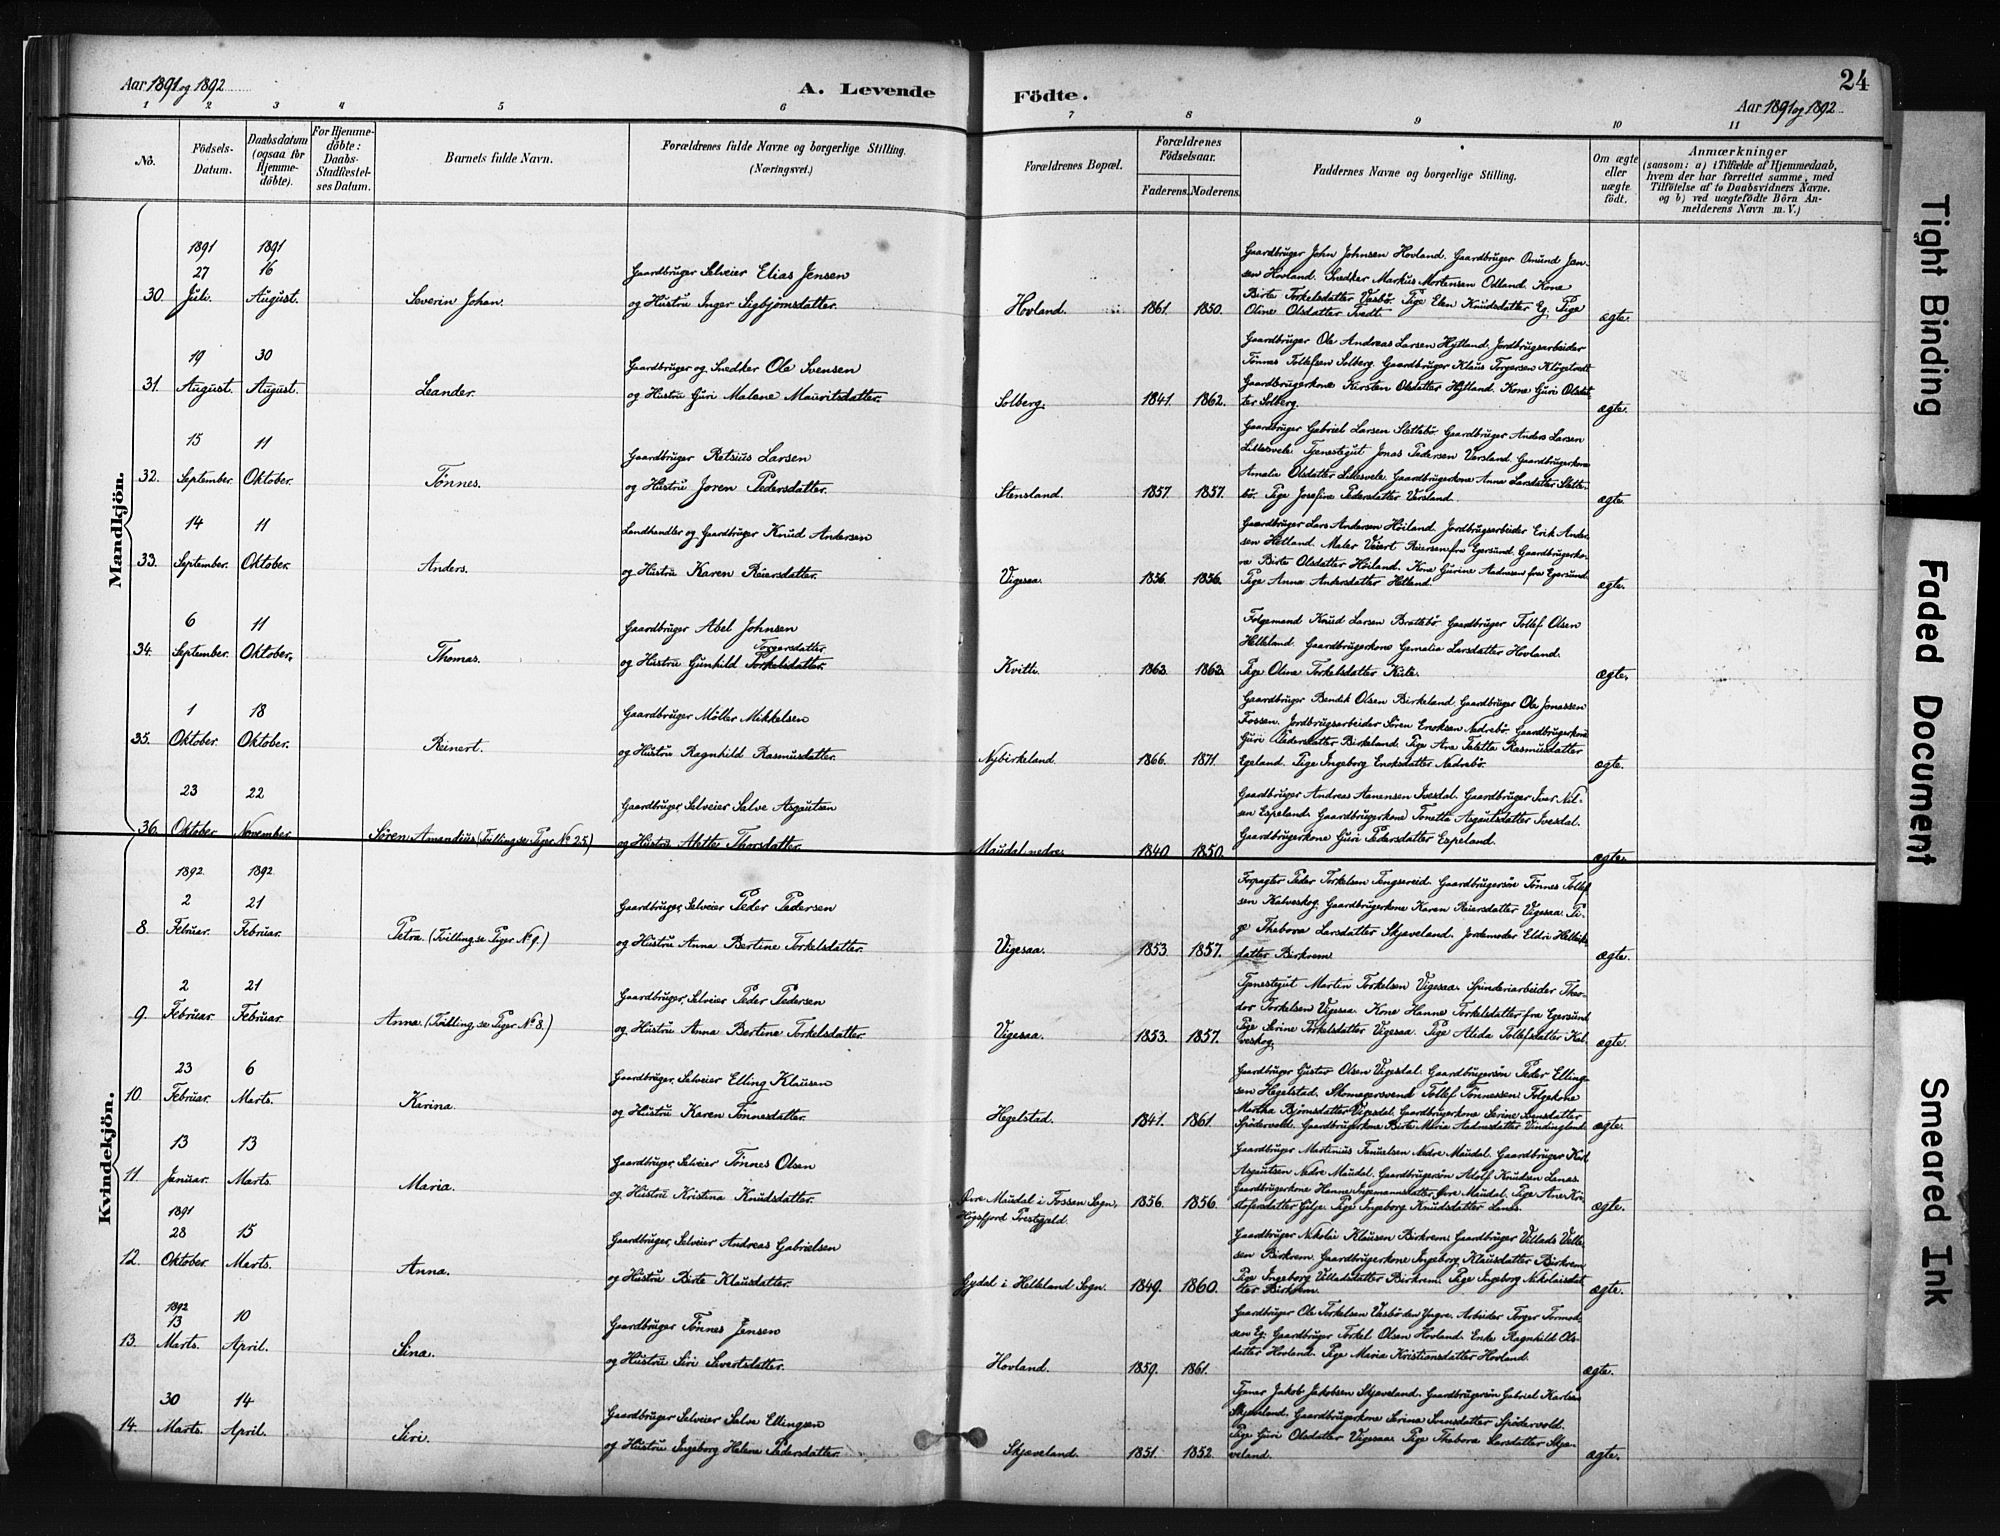 Aar 1891 og 1892
A. Levende Födte.
24
Aar 1891 og 1892
1 2 3 4 5 6 7 8 9 10 11
No.
Födsels-
Datum.
Daabsdatum
(ogsaa for
Hjemme-
döbte).
For Hjemme-
döbte:
Daabs-
Stadfæstel-
ses Datum.
Barnets fulde Navn.
Forældrenes fulde Navne og borgerlige Stilling.
(Næringsvei.)
Forældrenes Bopæl.
Forældrenes
Födselsaar.
Faderens. Moderens.
Faddernes Navne og borgerlige Stilling.
Om ægte
eller
uægte
födt.
Anmærkninger
(saasom: a) i Tilfælde af Hjemmedaab,
hvem der har forrettet samme, med
Tilföielse af to Daabsvidners Navne.
og b) ved uægtefödte Börn An-
melderens Navn m. V.)
Mandkjön.
1891 1891
27 16
30. Juli. August. Severin Johan.
Gaardbruger Selveier Elias Jensen
og Hustru Inger Sigbjørnsdatter.
Hovland. 1861. 1850.
Gaardbruger John Johnsen Hovland. Gaardbruger Omund Jen-
sen Hovland. Snedker Markus Mortensen Odland. Kone
Birte Torkelsdatter Vasbö. Pige Elen Knudsdatter Eg. Pige
Oline Olsdatter Tvedt.
ægte.
19 30
31. August. August. Leander.
Gaardbruger og Snedker Ole Svensen
og Hustru Guri Malene Mauritsdatter.
Solberg. 1841. 1862.
Gaardbruger Ole Andreas Larsen Hytland. Jordbrugsarbeider
Tönnes Tollefsen Solberg. Gaardbruger Klaus Torgersen Klögetvedt
Gaardbrugerkone Kirsten Olsdatter Hytland. Kone Guri Olsdat-
ter Solberg.
ægte.
15 11
32. September. Oktober. Tönnes.
Gaardbruger Retsius Larsen
og Hustru Joren Pedersdatter.
Stensland. 1857. 1857.
Gaardbruger Gabriel Larsen Slettebö. Gaardbruger Anders Larsen
Lillesvele. Tjenestegut Jonas Pedersen Versland. Gaardbrugerkone
Amalie Olsdatter Lillesvele. Gaardbrugerkone Anna Larsdatter Slette-
bö. Pige Josefine Pedersdatter Versland.
ægte.
14 11
33. September. Oktober. Anders.
Landhandler og Gaardbruger Knud Andersen
og Hustru Karen Reiersdatter.
Vigesaa. 1856. 1856.
Gaardbruger Lars Andersen Höiland. Jordbrugsarbeider Erik Ander-
sen Hetland. Maler Veiert Reiersen fra Egersund. Gaardbrugerko-
ne Birte Olsdatter Höiland. Kone Gurine Aadnesen fra Egersund.
Pige Anna Andersdatter Hetland.
ægte.
6 11
34. September. Oktober. Thomas.
Gaardbruger Abel Johnsen
Torgersdatter
og Hustru Gunhild Torkelsdatter.
Kvitti. 1863. 1862.
Folgemand Knud Larsen Brattebö. Gaardbruger Tollef Olsen
Helleland. Gaardbrugerkone Gemalie Larsdatter Hovland.
Pige Oline Torkelsdatter Kule.
ægte.
1 18
35. Oktober. Oktober. Reinert.
Gaardbruger Möller Mikkelsen
og Hustru Ragnhild Rasmusdatter.
Nybirkeland. 1866. 1871.
Gaardbruger Bendik Olsen Birkeland. Gaardbruger Ole Jonassen
Fossen. Jordbrugsarbeider Sören Enoksen Nedrebö. Gaardbrugerkone
Guri Pedersdatter Birkeland. Pige Ane Taletta Rasmusdatter
Egeland. Pige Ingeborg Enoksdatter Nedrebö.
ægte.
23 22
36. Oktober November Sören Amandius (Tvilling, se Piger No 25)
Gaardbruger, Selveier Salve Asgautsen
og Hustru Alette Thorsdatter.
Maudal, nedre. 1840 1850.
Gaardbruger Andreas Aanensen Ivesdal. Gaardbruger Iver Nil-
sen Espeland. Gaardbrugerkone Tonette Asgautsdatter Ivesdal.
Gaardbrugerkone Guri Pedersdatter Espeland.
ægte.
Kvindekjön.
1892. 1892.
2 21
8. Februar. Februar. Petra. (Tvilling, se Piger No 9.)
Gaardbruger, Selveier Peder Pedersen
og Hustru Anna Bertine Torkelsdatter.
Vigesaa. 1853. 1857.
Forpagter Peder Torkelsen Tengesereid. Gaardbrugersön Tönnes Tollef-
sen Kalveskog. Gaardbrugerkone Karen Reiersdatter Vigesaa. Pi-
ge Thabora Larsdatter Skjæveland. Jordemoder Eldri Helleiks-
datter Birkrem
ægte.
2 21
9. Februar. Februar. Anna. (Tvilling, se Piger No 8.)
Gaardbruger, Selveier Peder Pedersen
og Hustru Anna Bertine Torkelsdatter.
Vigesaa. 1853. 1857.
Tjenestegut Martin Torkelsen Vigesaa. Spinderiarbeider Theo-
dor Torkelsen Vigesaa. Kone Hanne Torkelsdatter fra Egersund.
Pige Serine Torkelsdatter Vigesaa. Pige Alida Tollefsdatter Kal-
veskog.
ægte.
23 6
10 Februar. Marts. Karina.
Gaardbruger, Selveier Elling Klausen
og Hustru Karen Tönnesdatter.
Hegelstad. 1841. 1861.
Gaardbruger Gustav Olsen Vigesdal. Gaardbrugersön Peder Elling-
sen Hegelstad. Skomagersvend Tollef Tönnessen. Folgekone
Martha Björnsdatter Vigesdal. Gaardbrugerkone Serine Svensdatter
Spödervold. Gaardbrugerkone Birte Maria Aadnesdatter Vindingland.
ægte.
13 13
11 Januar. Marts. Maria.
Gaardbruger, Selveier Tönnes Olsen
og Hustru Kristina Knudsdatter.
Övre Maudal i Fossen Sogn,
Högsfjord Prestegjeld. 1856. 1856.
Gaardbruger Martinius Tanuelsen Nedre Maudal. Gaardbruger Karl
Asgautsen Nedre Maudal. Gaardbrugersön Adolf Knudsen Lenas.
Gaardbrugerkone Hanne Ingemannsdatter, Övre Maudal. Pige Ane Kri-
stofersdatter Gilje. Pige Ingeborg Knudsdatter Lenes.
ægte.
1891
28 15
12. Oktober. Marts. Anna.
Gaardbruger, Selveier Andreas Gabrielsen
og Hustru Birte Klausdatter.
Gydal i Helleland Sogn. 1849. 1860.
Gaardbruger Nikolai Klausen Birkrem. Gaardbruger Villads Velle-
sen Birkrem. Gaardbrugerkone Ingeborg Klausdatter Birkrem
Pige Ingeborg Villadsdatter Birkrem. Pige Ingeborg Nikolaisdat-
ter Birkrem.
ægte.
1892
13 10
13. Marts. April. Sina.
Gaardbruger Tönnes Jensen
og Hustru Siri Sivertsdatter.
Hovland. 1859. 1861.
Gaardbruger Ole Torkelsen Vasbö den Yngre. Arbeider Torger Tormod-
sen Eg. Gaardbruger Torkel Olsen Hovland. Enke Ragnhild Ols-
datter Hovland. Pige Maria Kristiansdatter Hovland.
ægte.
30 14
14. Marts. April. Siri.
Gaardbruger Selveier Salve Ellingsen
og Hustru Ingeborg Helene Pedersdatter.
Skjæveland. 1851. 1852.
Tjener Jakob Jakobsen Skjæveland. Gaardbrugersön Gabriel Karlsen
Skjæveland. Gaardbrugerkone Serina Svensdatter Spödervold.
Pige Guri Olsdatter Vigesaa. Pige Thabora Larsdatter Skjæ-
veland.
ægte.
Tight Binding
Faded Document
Smeared Ink